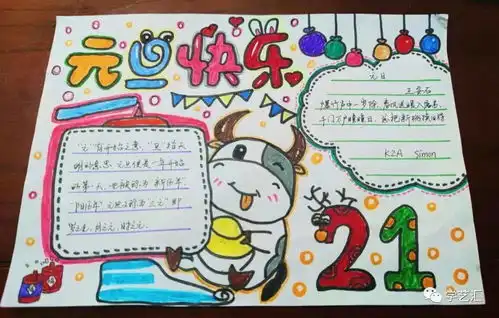 元旦快乐
元日
王安石
爆竹声中一岁除，春风送暖入屠苏。
千门万户曈曈日，总把新桃换旧符
K2A Simon
"元"有开始之意，"旦"指天
明的意思。元旦便是一年开始
的第一天，也被称为"新历年"，
"阳历年"元旦又称为"三元"即
岁之元、月之元、时之元。
21
学艺汇